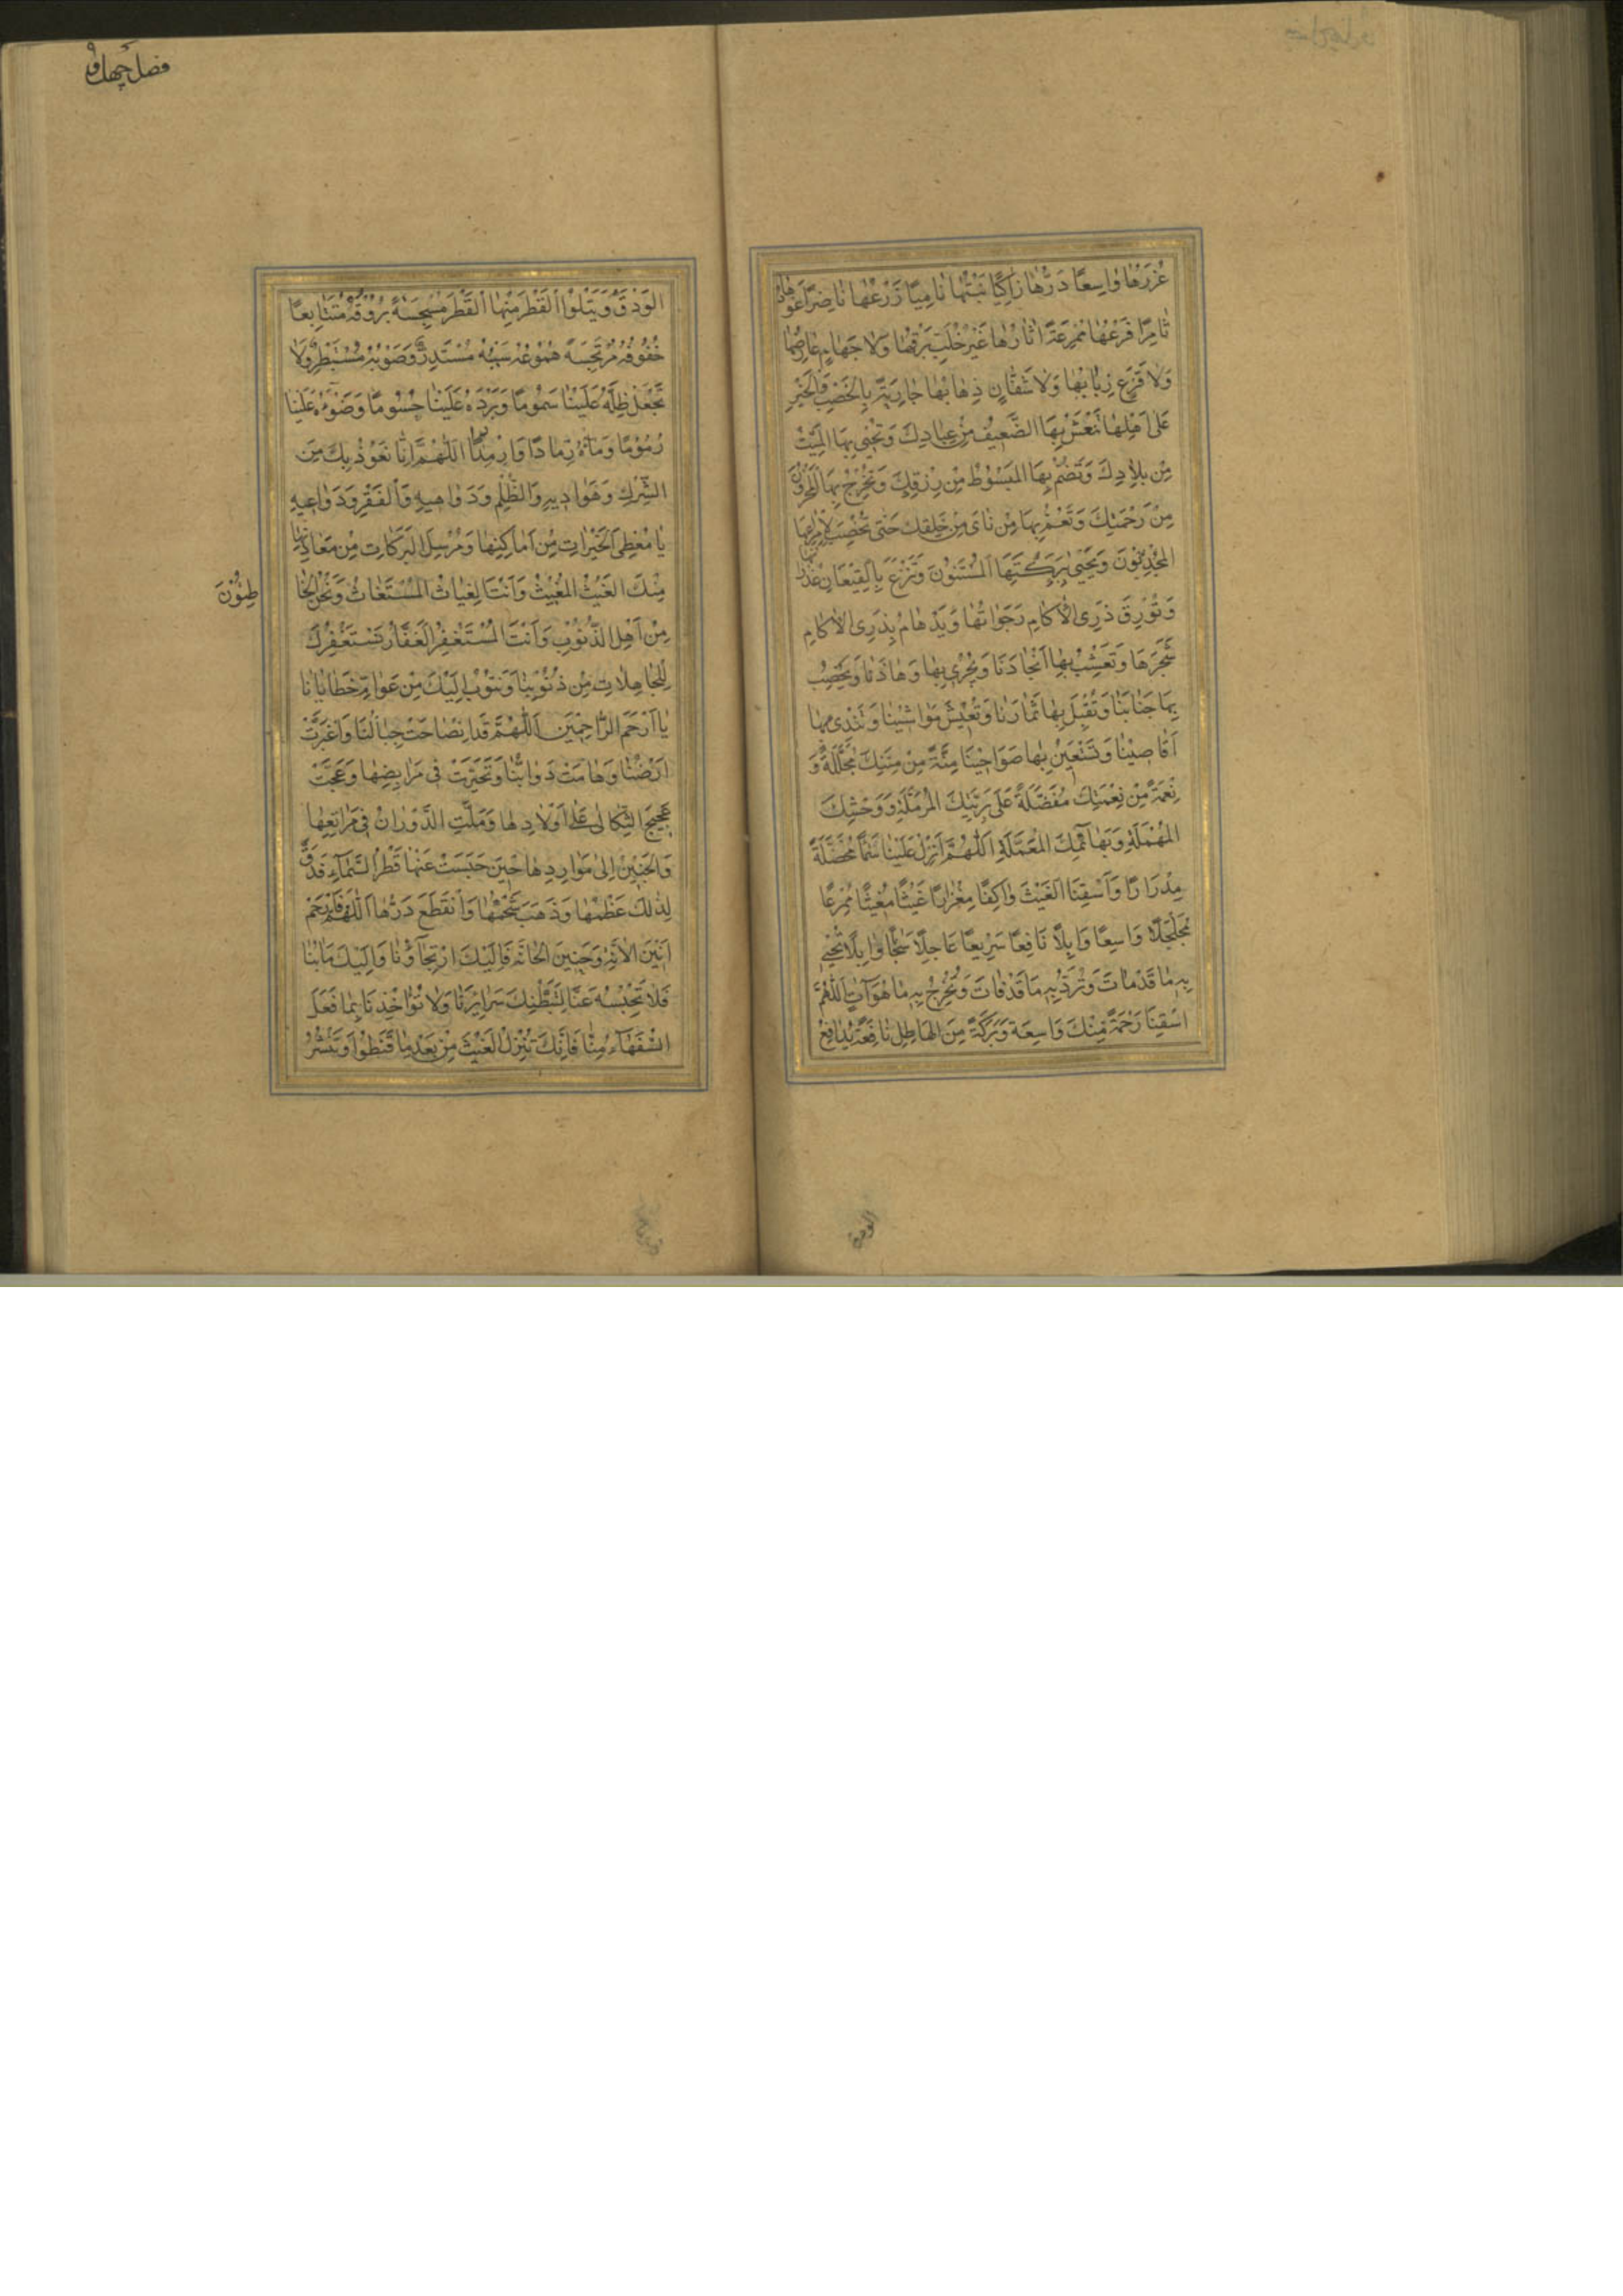 غُزْرَهَا وَاسِعًا دَرُّهَا زَاكِيًا نَبْتُهَا نَامِيًا زَرْعُهَا نَاضِرًا عُودُهَا
ثَامِرًا فَرْعُهَا مُمْرِعَةً اٰثَارُهَا غَيْرَ خُلَّبٍ بَرْقُهَا وَلَا جَهَامٍ عَارِضُهَا
وَلَا قَزَعٍ رَبَابُهَا وَلَا شَفَّانٍ ذِهَابُهَا جَارِيَةً بِالْخَصْبِ وَالْخَيْرِ
عَلٰى اَهْلِهَا تَنْعَشُ بِهَا الضَّعِيفَ مِنْ عِبَادِكَ وَتُحْيِي بِهَا الْمَيِّتَ
مِنْ بِلَادِكَ وَتَضُمُّ بِهَا الْمَبْسُوطَ مِنْ رِزْقِكَ وَتُخْرِجُ بِهَا الْمَخْزُونَ
مِنْ رَحْمَتِكَ وَتَعُمُّ بِهَا مَنْ نَاٰى مِنْ خَلْقِكَ حَتّٰى تُخْصِبَ لِاِمْرَاعِهَا
الْمُجْدِبُونَ وَيَحْيٰى بِبَرَكَتِهَا الْمُسْنِتُونَ وَتُتْرَعَ بِالْقِيعَانِ غُدْرَانُهَا
وَتُورِقَ ذُرَى الْاٰكَامِ رَجَوَاتُهَا وَيَدْهَامَّ بِذُرَى الْاٰكَامِ
شَجَرُهَا وَتُعْشِبُ بِهَا اَنْجَادُنَا وَتَجْرِي بِهَا وِهَادُنَا وَيُخْصِبُ
بِهَا جَنَابُنَا وَتُقْبِلُ بِهَا ثِمَارُنَا وَتَعِيشُ مَوَاشِينَا وَتَنْدٰى بِهَا
اَقَاصِينَا وَتَسْتَعِينُ بِهَا ضَوَاحِينَا مِنَّةً مِنْ مِنَنِكَ مُجَلِّلَةً وَ
نِعْمَةً مِنْ نِعْمَتِكَ مُفَضَّلَةً عَلٰى بَرِيَّتِكَ الْمُرْمِلَةِ وَوَحْشِكَ
الْمُهْمَلَةِ وَبَهَائِمِكَ الْمُعْمَلَةِ اَللّٰهُمَّ اَنْزِلْ عَلَيْنَا سَمَآءً مُخْضِلَةً
مِدْرَارًا وَاَسْقِنَا الْغَيْثَ وَاكِفًا مِغْزَارًا غَيْثًا مُغِيثًا مُمْرِعًا
مُجَلْجِلًا وَاسِعًا وَابِلًا نَافِعًا سَرِيعًا عَاجِلًا سَحًّا وَابِلًا تُحْيِي
بِهِ مَا قَدْ مَاتَ وَتَرُدُّ بِهِ مَا قَدْ فَاتَ وَتُخْرِجُ بِهِ مَا هُوَ اٰتٍ اَللّٰهُمَّ
اسْقِنَا رَحْمَةً مِنْكَ وَاسِعَةً وَبَرَكَةً مِنَ الْهَاطِلِ نَافِعَةً يُدَافِعُ
الودق
فصل چهل و
الْوَدْقُ وَيَتْلُوا الْقَطْرُ مِنْهَا الْقَطْرَ مُنْبَجِسَةً بُرُوقُهُ مُتَتَابِعًا
خُفُوقُهُ مُرْتَجِسَةً هُمُوعُهُ سَيْبُهُ مُسْتَدِرٌّ وَصَوْبُهُ مُسْبَطِرٌّ وَلَا
تَجْعَلْ ظِلَّهُ عَلَيْنَا سَمُومًا وَبَرْدَهُ عَلَيْنَا حُسُومًا وَضَوْءَهُ عَلَيْنَا
رُجُومًا وَمَآءَهُ رَمَادًا رِمْدِدًا اَللّٰهُمَّ اِنَّا نَعُوذُ بِكَ مِنَ
الشِّرْكِ وَهَوَادِيهِ وَالظُّلْمِ وَدَوَاهِيهِ وَالْفَقْرِ وَدَوَاعِيهِ
يَا مُعْطِيَ الْخَيْرَاتِ مِنْ اَمَاكِنِهَا وَمُرْسِلَ الْبَرَكَاتِ مِنْ مَعَادِنِهَا
مِنْكَ الْغَيْثُ الْمُغِيثُ وَاَنْتَ الْغِيَاثُ الْمُسْتَغَاثُ وَنَحْنُ الْخَا
طِئُونَ
مِنْ اَهْلِ الذُّنُوبِ وَاَنْتَ الْمُسْتَغْفَرُ الْغَفَّارُ نَسْتَغْفِرُكَ
لِلْجَاهِلَاتِ مِنْ ذُنُوبِنَا وَنَتُوبُ اِلَيْكَ مِنْ عَوَامِّ خَطَايَانَا
يَا اَرْحَمَ الرَّاحِمِينَ اَللّٰهُمَّ قَدِ انْصَاحَتْ جِبَالُنَا وَاغْبَرَّتْ
اَرْضُنَا وَهَامَتْ دَوَابُّنَا وَتَحَيَّرَتْ فِي مَرَابِضِهَا وَعَجَّتْ
عَجِيجَ الثَّكَالٰى عَلٰى اَوْلَادِهَا وَمَلَّتِ الدَّوَرَانَ فِي مَرَاتِعِهَا
وَالْحَنِينَ اِلٰى مَوَارِدِهَا حِينَ حَبَسْتَ عَنْهَا قَطْرَ السَّمَآءِ فَدَقَّ
لِذٰلِكَ عَظْمُهَا وَذَهَبَ شَحْمُهَا وَانْقَطَعَ دَرُّهَا اَللّٰهُمَّ فَارْحَمْ
اَنِينَ الْاٰنَّةِ وَحَنِينَ الْحَانَّةِ فَاِلَيْكَ ارْتِجَاؤُنَا وَاِلَيْكَ مَاٰبُنَا
فَلَا تَحْبِسْهُ عَنَّا لِتَبَطُّنِكَ سَرَائِرَنَا وَلَا تُؤَاخِذْنَا بِمَا فَعَلَ
السُّفَهَآءُ مِنَّا فَاِنَّكَ تُنْزِلُ الْغَيْثَ مِنْ بَعْدِ مَا قَنَطُوا وَتَنْشُرُ